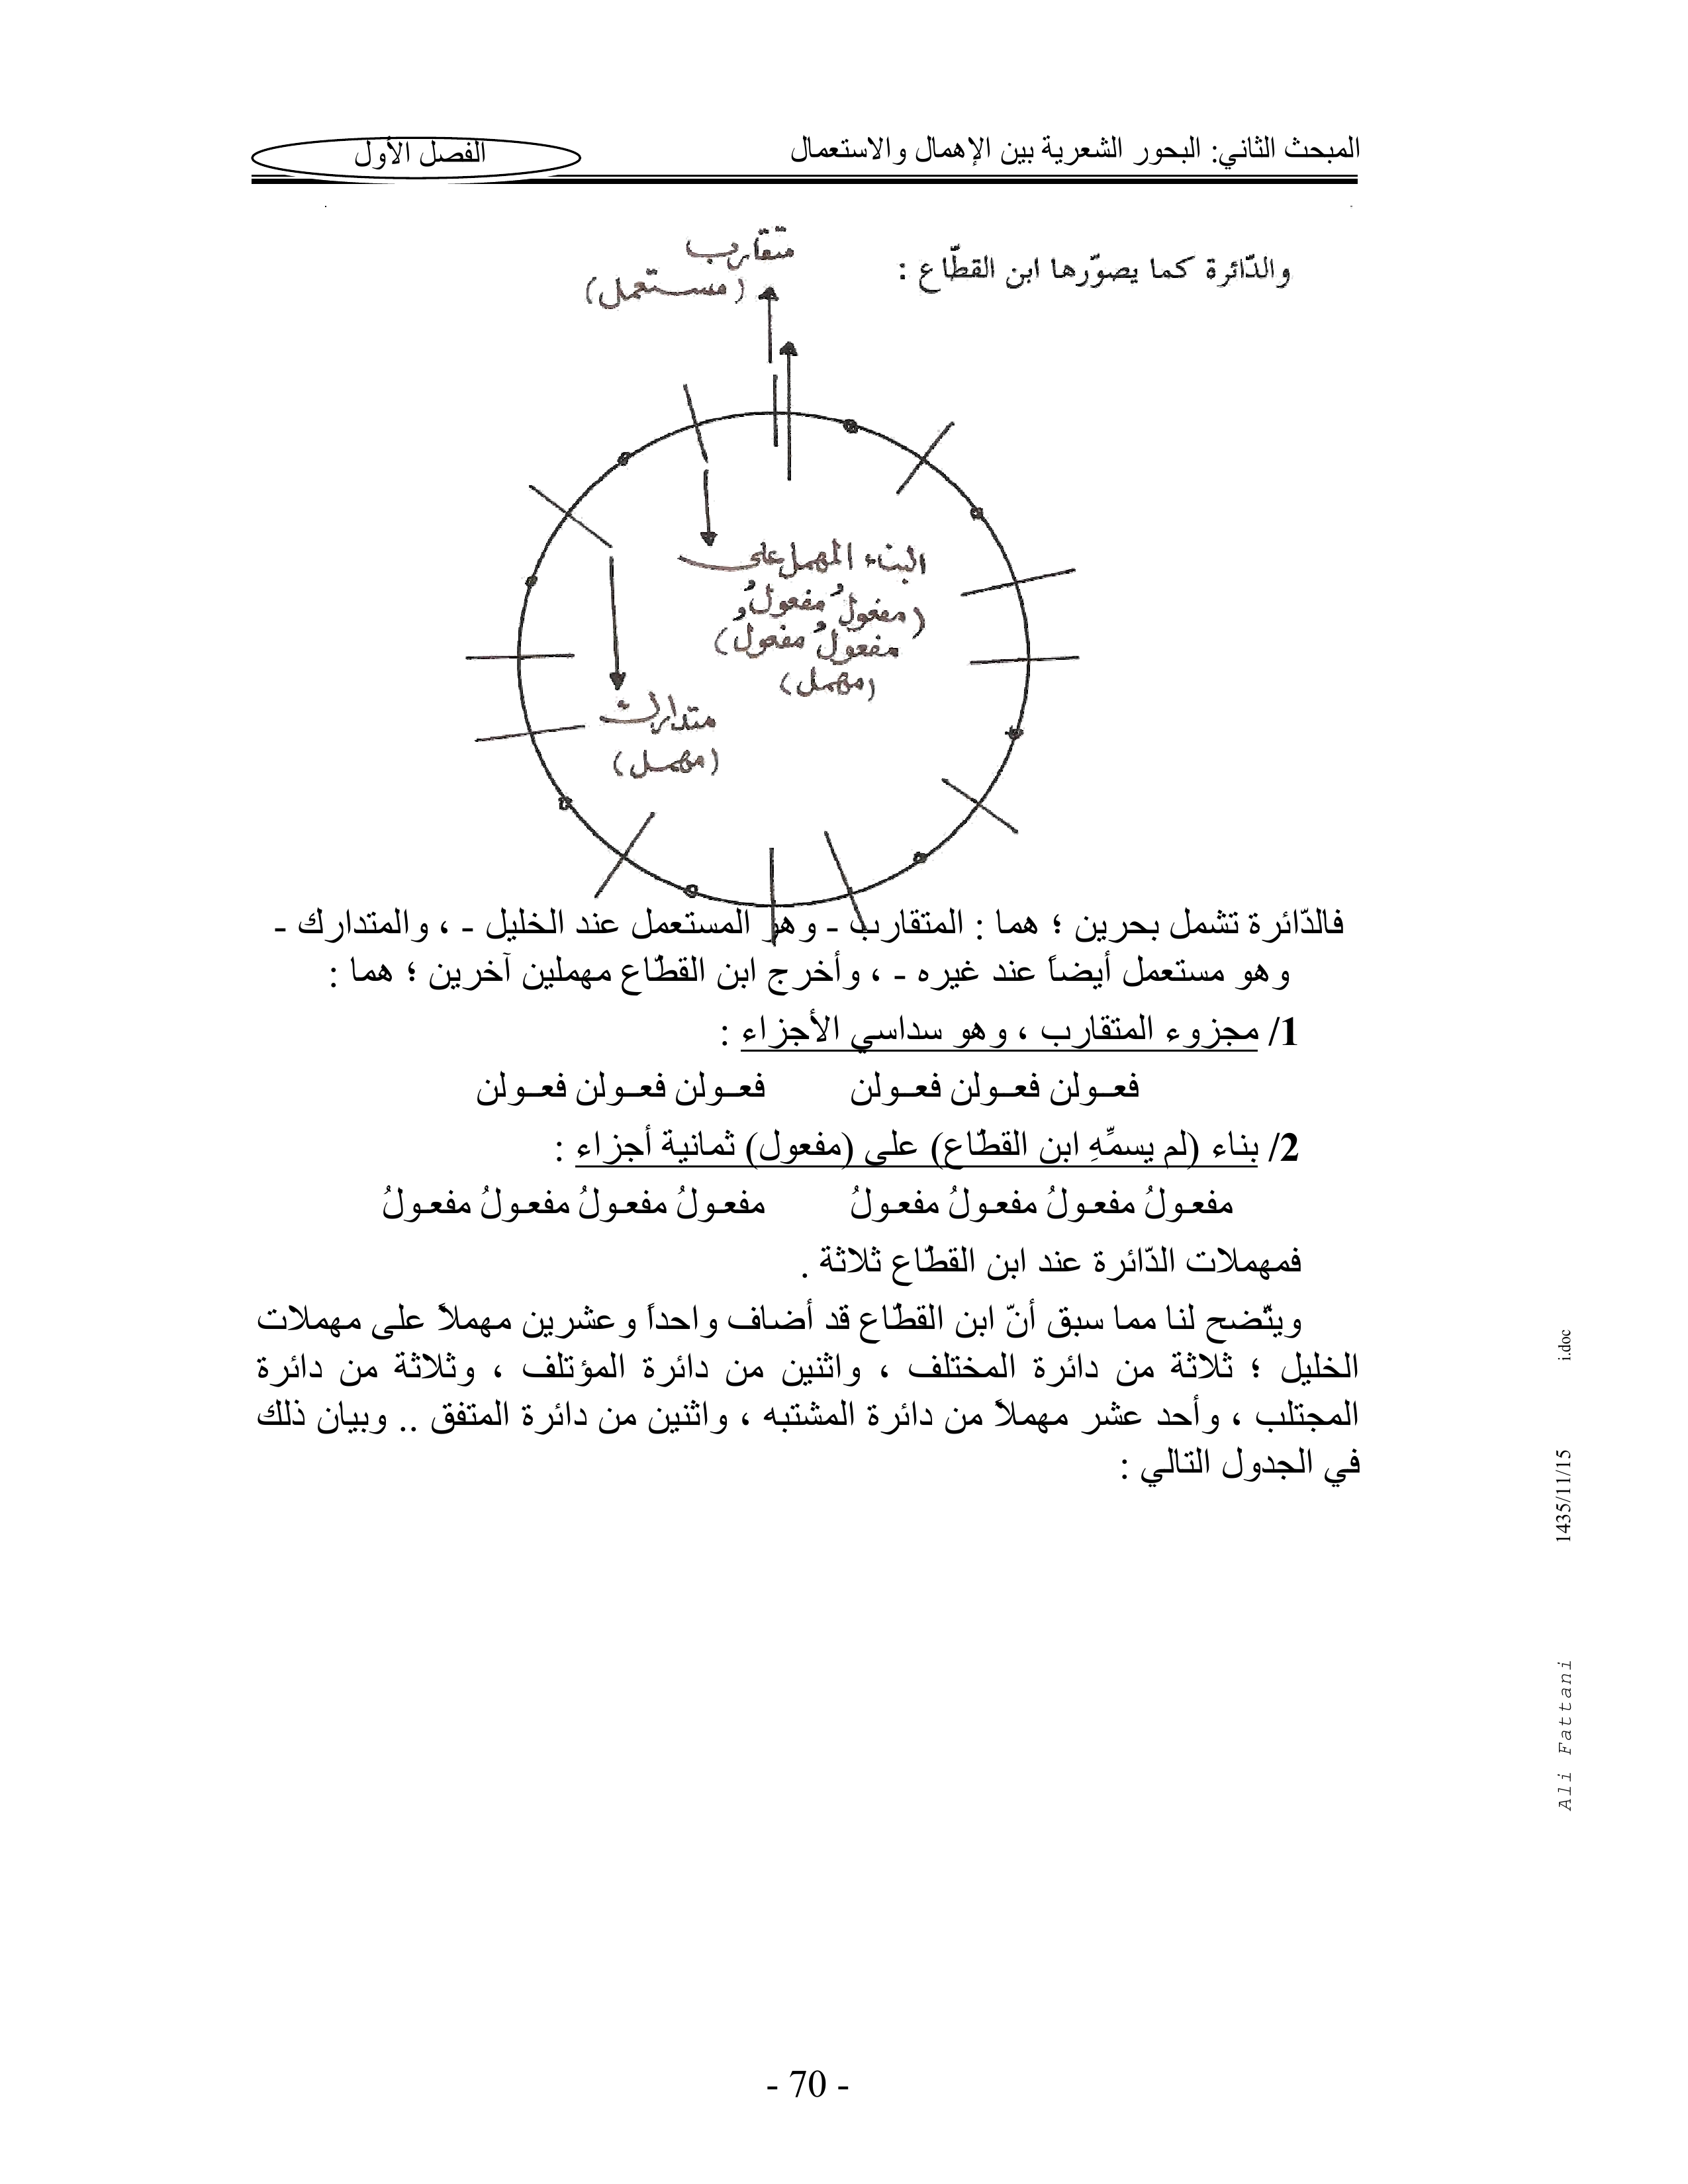 المبحث الثاني: البحور الشعرية بين الإهمال والاستعمال
الفصل الأول
والدّائرة كما يصوّرها ابن القطّاع :
متقارب
(مستعمل)
البناء المهمل على
(مفعولُ مفعولُ و
مفعولُ مفعولُ)
(مهمل)
متدارك
(مهمل)
فالدّائرة تشمل بحرين ؛ هما : المتقارب - وهو المستعمل عند الخليل - ، والمتدارك -
وهو مستعمل أيضاً عند غيره - ، وأخرج ابن القطّاع مهملين آخرين ؛ هما :
1/ مجزوء المتقارب ، وهو سداسي الأجزاء :
فعــولن فعــولن فعــولن فعــولن فعــولن فعــولن
2/ بناء (لم يسمِّهِ ابن القطّاع) على (مفعول) ثمانية أجزاء :
مفعـولُ مفعـولُ مفعـولُ مفعـولُ مفعـولُ مفعـولُ مفعـولُ مفعـولُ
فمهملات الدّائرة عند ابن القطّاع ثلاثة .
ويتّضح لنا مما سبق أنّ ابن القطّاع قد أضاف واحداً وعشرين مهملاً على مهملات
الخليل ؛ ثلاثة من دائرة المختلف ، واثنين من دائرة المؤتلف ، وثلاثة من دائرة
المجتلب ، وأحد عشر مهملاً من دائرة المشتبه ، واثنين من دائرة المتفق .. وبيان ذلك
في الجدول التالي :
i.doc
1435/11/15
Ali Fattani
- 70 -